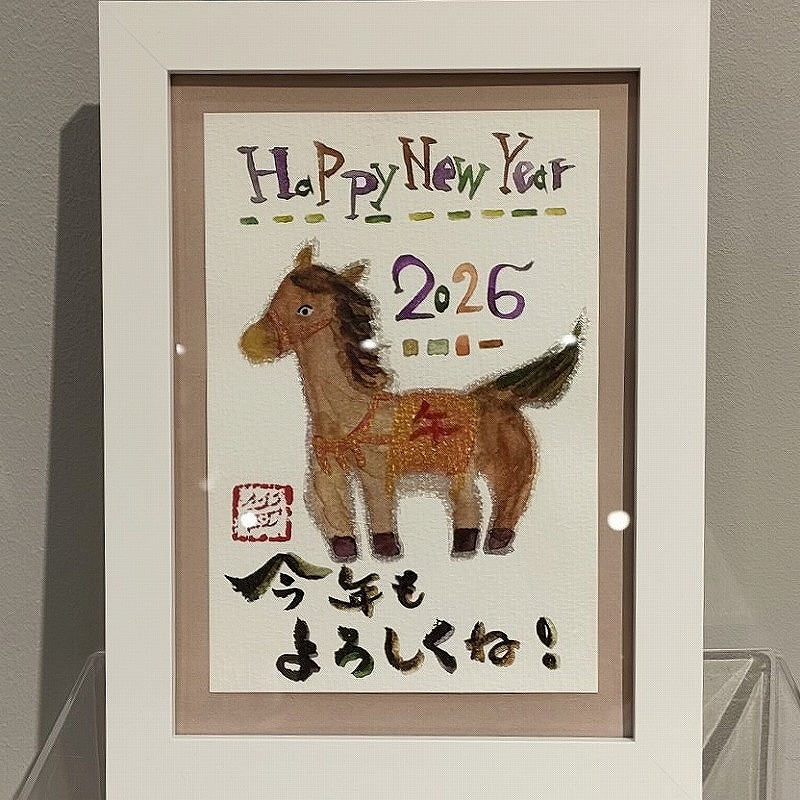 Happy New Year
2026
午
今年も
よろしくね!